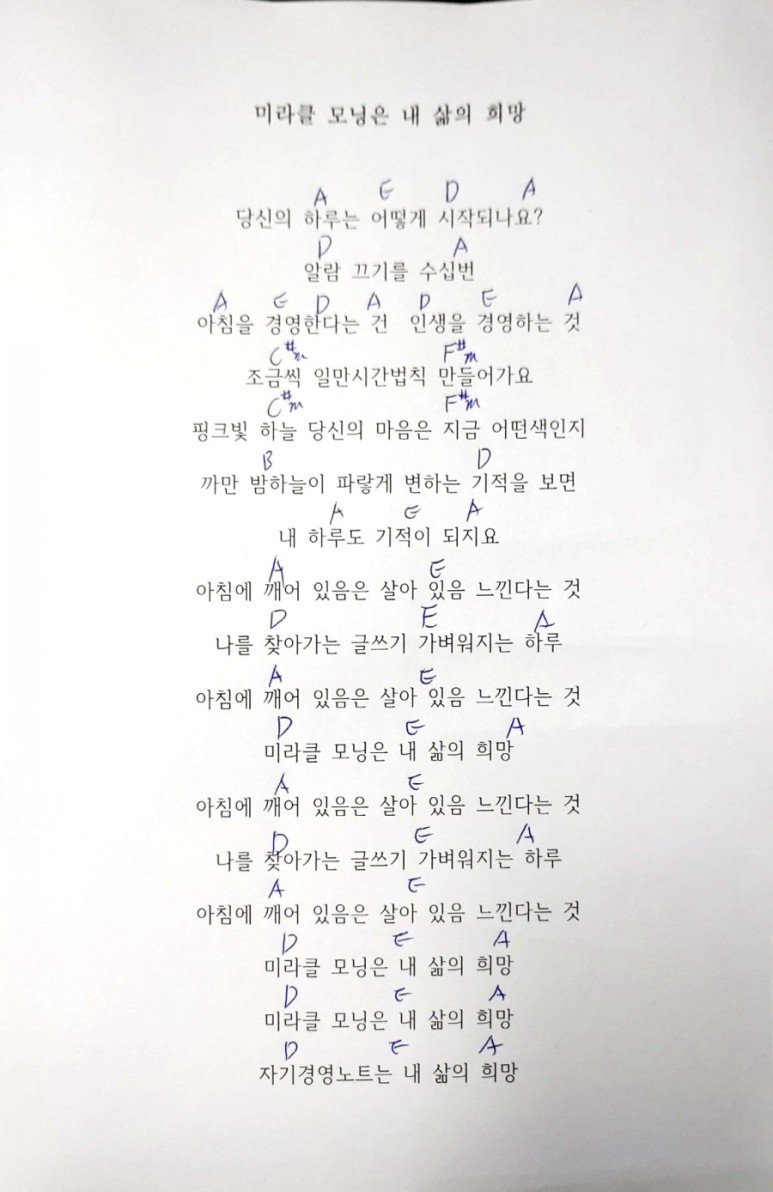 미라클 모닝은 내 삶의 희망
A E D A
당신의 하루는 어떻게 시작되나요?
D A
알람 끄기를 수십번
A E D A D E A
아침을 경영한다는 건 인생을 경영하는 것
C#m F#m
조금씩 일만시간법칙 만들어가요
C#m F#m
핑크빛 하늘 당신의 마음은 지금 어떤색인지
B D
까만 밤하늘이 파랗게 변하는 기적을 보면
A E A
내 하루도 기적이 되지요
A E
아침에 깨어 있음은 살아 있음 느낀다는 것
D E A
나를 찾아가는 글쓰기 가벼워지는 하루
A E
아침에 깨어 있음은 살아 있음 느낀다는 것
D E A
미라클 모닝은 내 삶의 희망
A E
아침에 깨어 있음은 살아 있음 느낀다는 것
D E A
나를 찾아가는 글쓰기 가벼워지는 하루
A E
아침에 깨어 있음은 살아 있음 느낀다는 것
D E A
미라클 모닝은 내 삶의 희망
D E A
미라클 모닝은 내 삶의 희망
D E A
자기경영노트는 내 삶의 희망